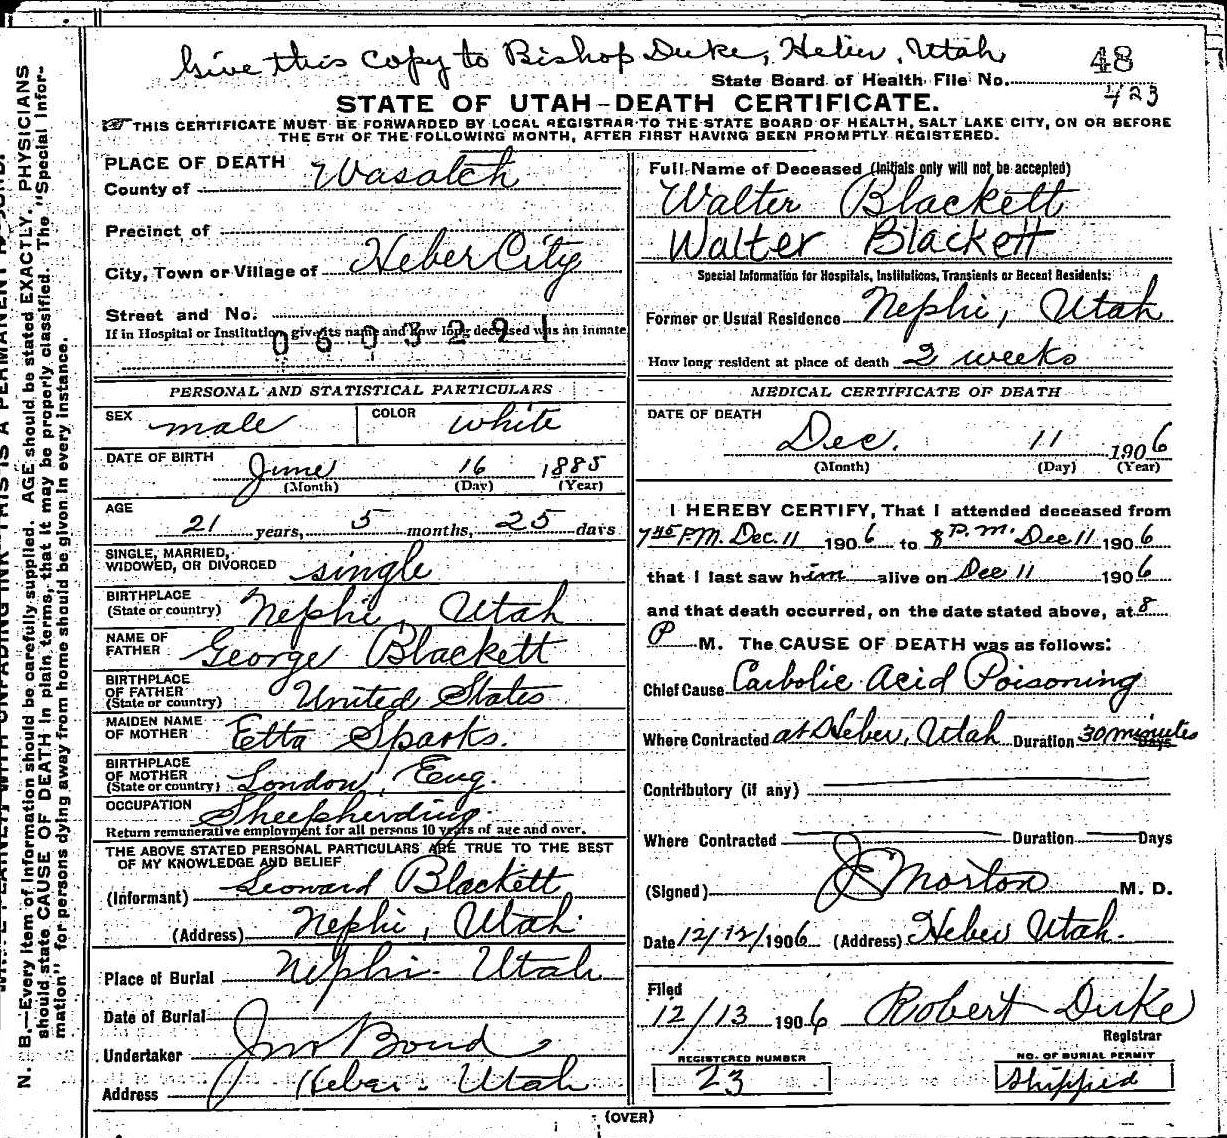 Give this copy to Bishop Duke, Heber, Utah
48
State Board of Health File No.
423
STATE OF UTAH-DEATH CERTIFICATE.
THIS CERTIFICATE MUST BE FORWARDED BY LOCAL REGISTRAR TO THE STATE BOARD OF HEALTH, SALT LAKE CITY, ON OR BEFORE
THE 5TH OF THE FOLLOWING MONTH, AFTER FIRST HAVING BEEN PROMPTLY REGISTERED.
PLACE OF DEATH
County of Wasatch
Precinct of
City, Town or Village of Heber City
Street and No.
If in Hospital or Institution, give its name and how long deceased was an inmate
0603291
PERSONAL AND STATISTICAL PARTICULARS
SEX male COLOR white
DATE OF BIRTH June 16 1885
(Month) (Day) (Year)
AGE
21 years, 5 months, 25 days
SINGLE, MARRIED,
WIDOWED, OR DIVORCED single
BIRTHPLACE
(State or country) Nephi, Utah
NAME OF
FATHER George Blackett
BIRTHPLACE
OF FATHER
(State or country) United States
MAIDEN NAME
OF MOTHER Etta Sparks.
BIRTHPLACE
OF MOTHER
(State or country) London, Eng.
OCCUPATION Sheepherding
Return remunerative employment for all persons 10 years of age and over.
THE ABOVE STATED PERSONAL PARTICULARS ARE TRUE TO THE BEST
OF MY KNOWLEDGE AND BELIEF
(Informant) Leonard Blackett
(Address) Nephi, Utah
Place of Burial Nephi - Utah
Date of Burial
Undertaker Jno Bond
Address Heber - Utah
Full Name of Deceased (Initials only will not be accepted)
Walter Blackett
Walter Blackett
Special Information for Hospitals, Institutions, Transients or Recent Residents:
Former or Usual Residence Nephi, Utah
How long resident at place of death 2 weeks
MEDICAL CERTIFICATE OF DEATH
DATE OF DEATH
Dec. 11 1906
(Month) (Day) (Year)
I HEREBY CERTIFY, That I attended deceased from
7 45 P.M. Dec. 11 1906 to 8 P.M. Dec 11 1906
that I last saw him alive on Dec 11 1906
and that death occurred, on the date stated above, at 8
P M. The CAUSE OF DEATH was as follows:
Chief Cause Carbolic Acid Poisoning
Where Contracted at Heber, Utah Duration 30 minutes Days
Contributory (if any)
Where Contracted Duration Days
(Signed) Morton M. D.
Date 12/12/1906 (Address) Heber Utah.
Filed
12/13 1906 Robert Duke
Registrar
REGISTERED NUMBER
23
NO. OF BURIAL PERMIT
Shipped
(OVER)
N. B.—Every item of information should be carefully supplied. AGE should be stated EXACTLY. PHYSICIANS
should state CAUSE OF DEATH in plain terms, that it may be properly classified. The "Special Infor-
mation" for persons dying away from home should be given in every instance.